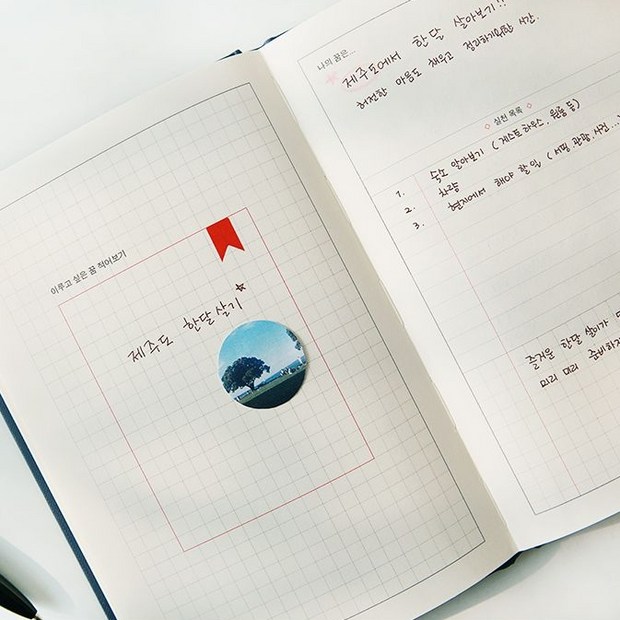 이루고 싶은 꿈 적어보기
제주도 한달살기
나의 꿈은...
제주도에서 한달 살아보기!!
허전한 마음도 채우고 정리하기위한 시간.
실천 목록
1. 숙소 알아보기 (게스트하우스, 원룸 등)
2. 차량
3. 현지에서 해야 할 일 (서핑, 관광, 사진...
즐거운 한달 살이가
미리 미리 준비하자